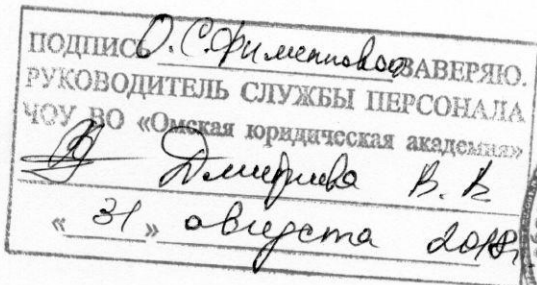 ПОДПИСЬ О.С.Филипповой ЗАВЕРЯЮ.
РУКОВОДИТЕЛЬ СЛУЖБЫ ПЕРСОНАЛА
ЧОУ ВО «Омская юридическая академия»
Дмитриева В. В
« 31 » августа 2018г.